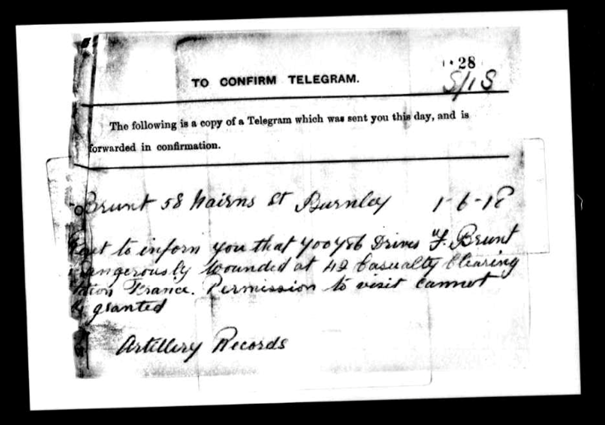 28
S/1S
TO CONFIRM TELEGRAM.
The following is a copy of a Telegram which was sent you this day, and is
forwarded in confirmation.
Brunt 58 Nairns St Burnley 1-6-18
to inform you that 700786 Driver F. Brunt
dangerously wounded at 42 Casualty Clearing
France. Permission to visit cannot
granted
Artillery Records